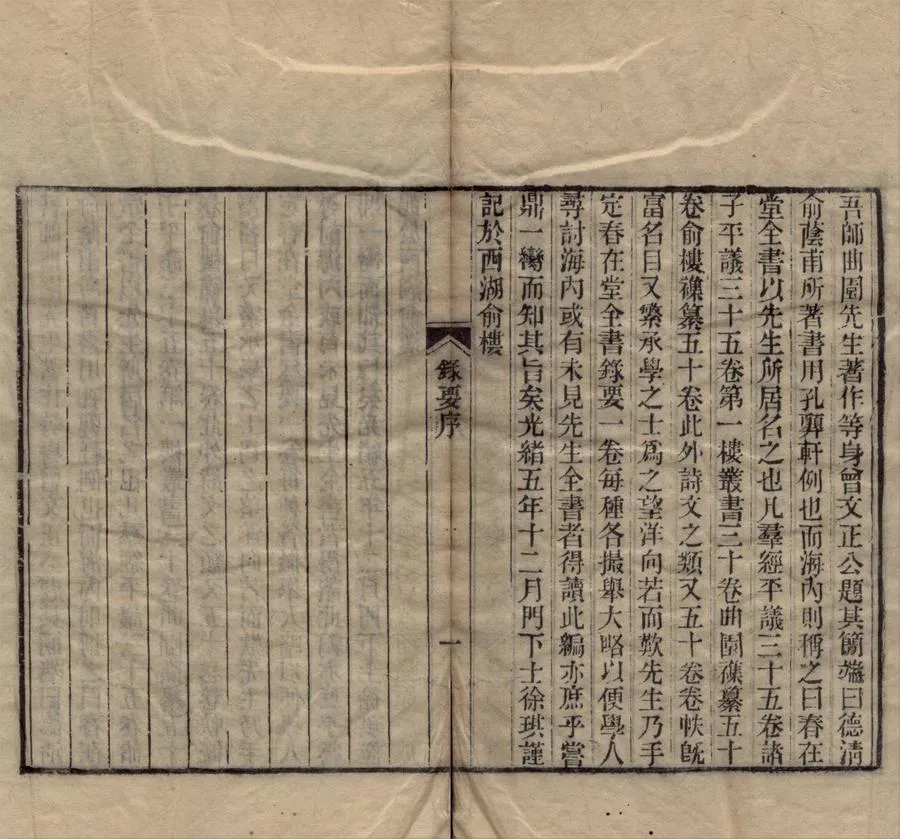 吾師曲園先生著作等身曾文正公題其簡端曰德淸
俞蔭甫所著書用孔㢲軒例也而海內則稱之曰春在
堂全書以先生所居名之也凡羣經平議三十五卷諸
子平議三十五卷第一樓叢書三十卷曲園襍纂五十
卷俞樓襍纂五十卷此外詩文之類又五十卷卷帙旣
富名目又緐承學之士爲之望洋向若而歎先生乃手
定春在堂全書錄要一卷每種各撮舉大略以便學人
尋討海內或有未見先生全書者得讀此編亦庶乎嘗
鼎一臠而知其旨矣光緒五年十二月門下士徐琪謹
記於西湖俞樓
錄要序
一